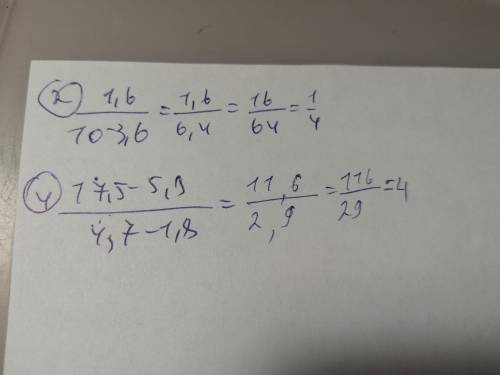 2) 1,6 / 10-3,6 = 1,6 / 6,4 = 16 / 64 = 1 / 4
4) 17,5-5,9 / 4,7-1,8 = 11,6 / 2,9 = 116 / 29 = 4